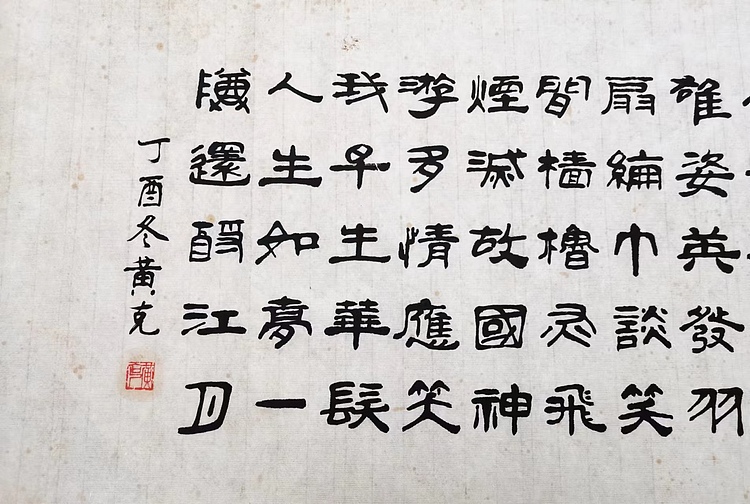 雄姿英發羽
扇綸巾談笑
間檣櫓灰飛
煙滅故國神
游多情應笑
我早生華髮
人生如夢一
還酹江月
丁酉冬黃克